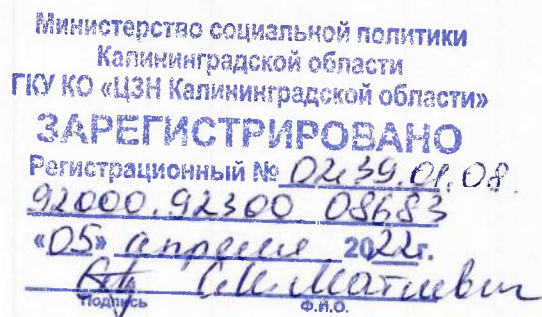 Министерство социальной политики
Калининградской области
ГКУ КО «ЦЗН Калининградской области»
ЗАРЕГИСТРИРОВАНО
Регистрационный № 02.39.01.08.
92000.92300 08683
«05» апреля 2022г.
С.М. Матиевич
Подпись Ф.И.О.